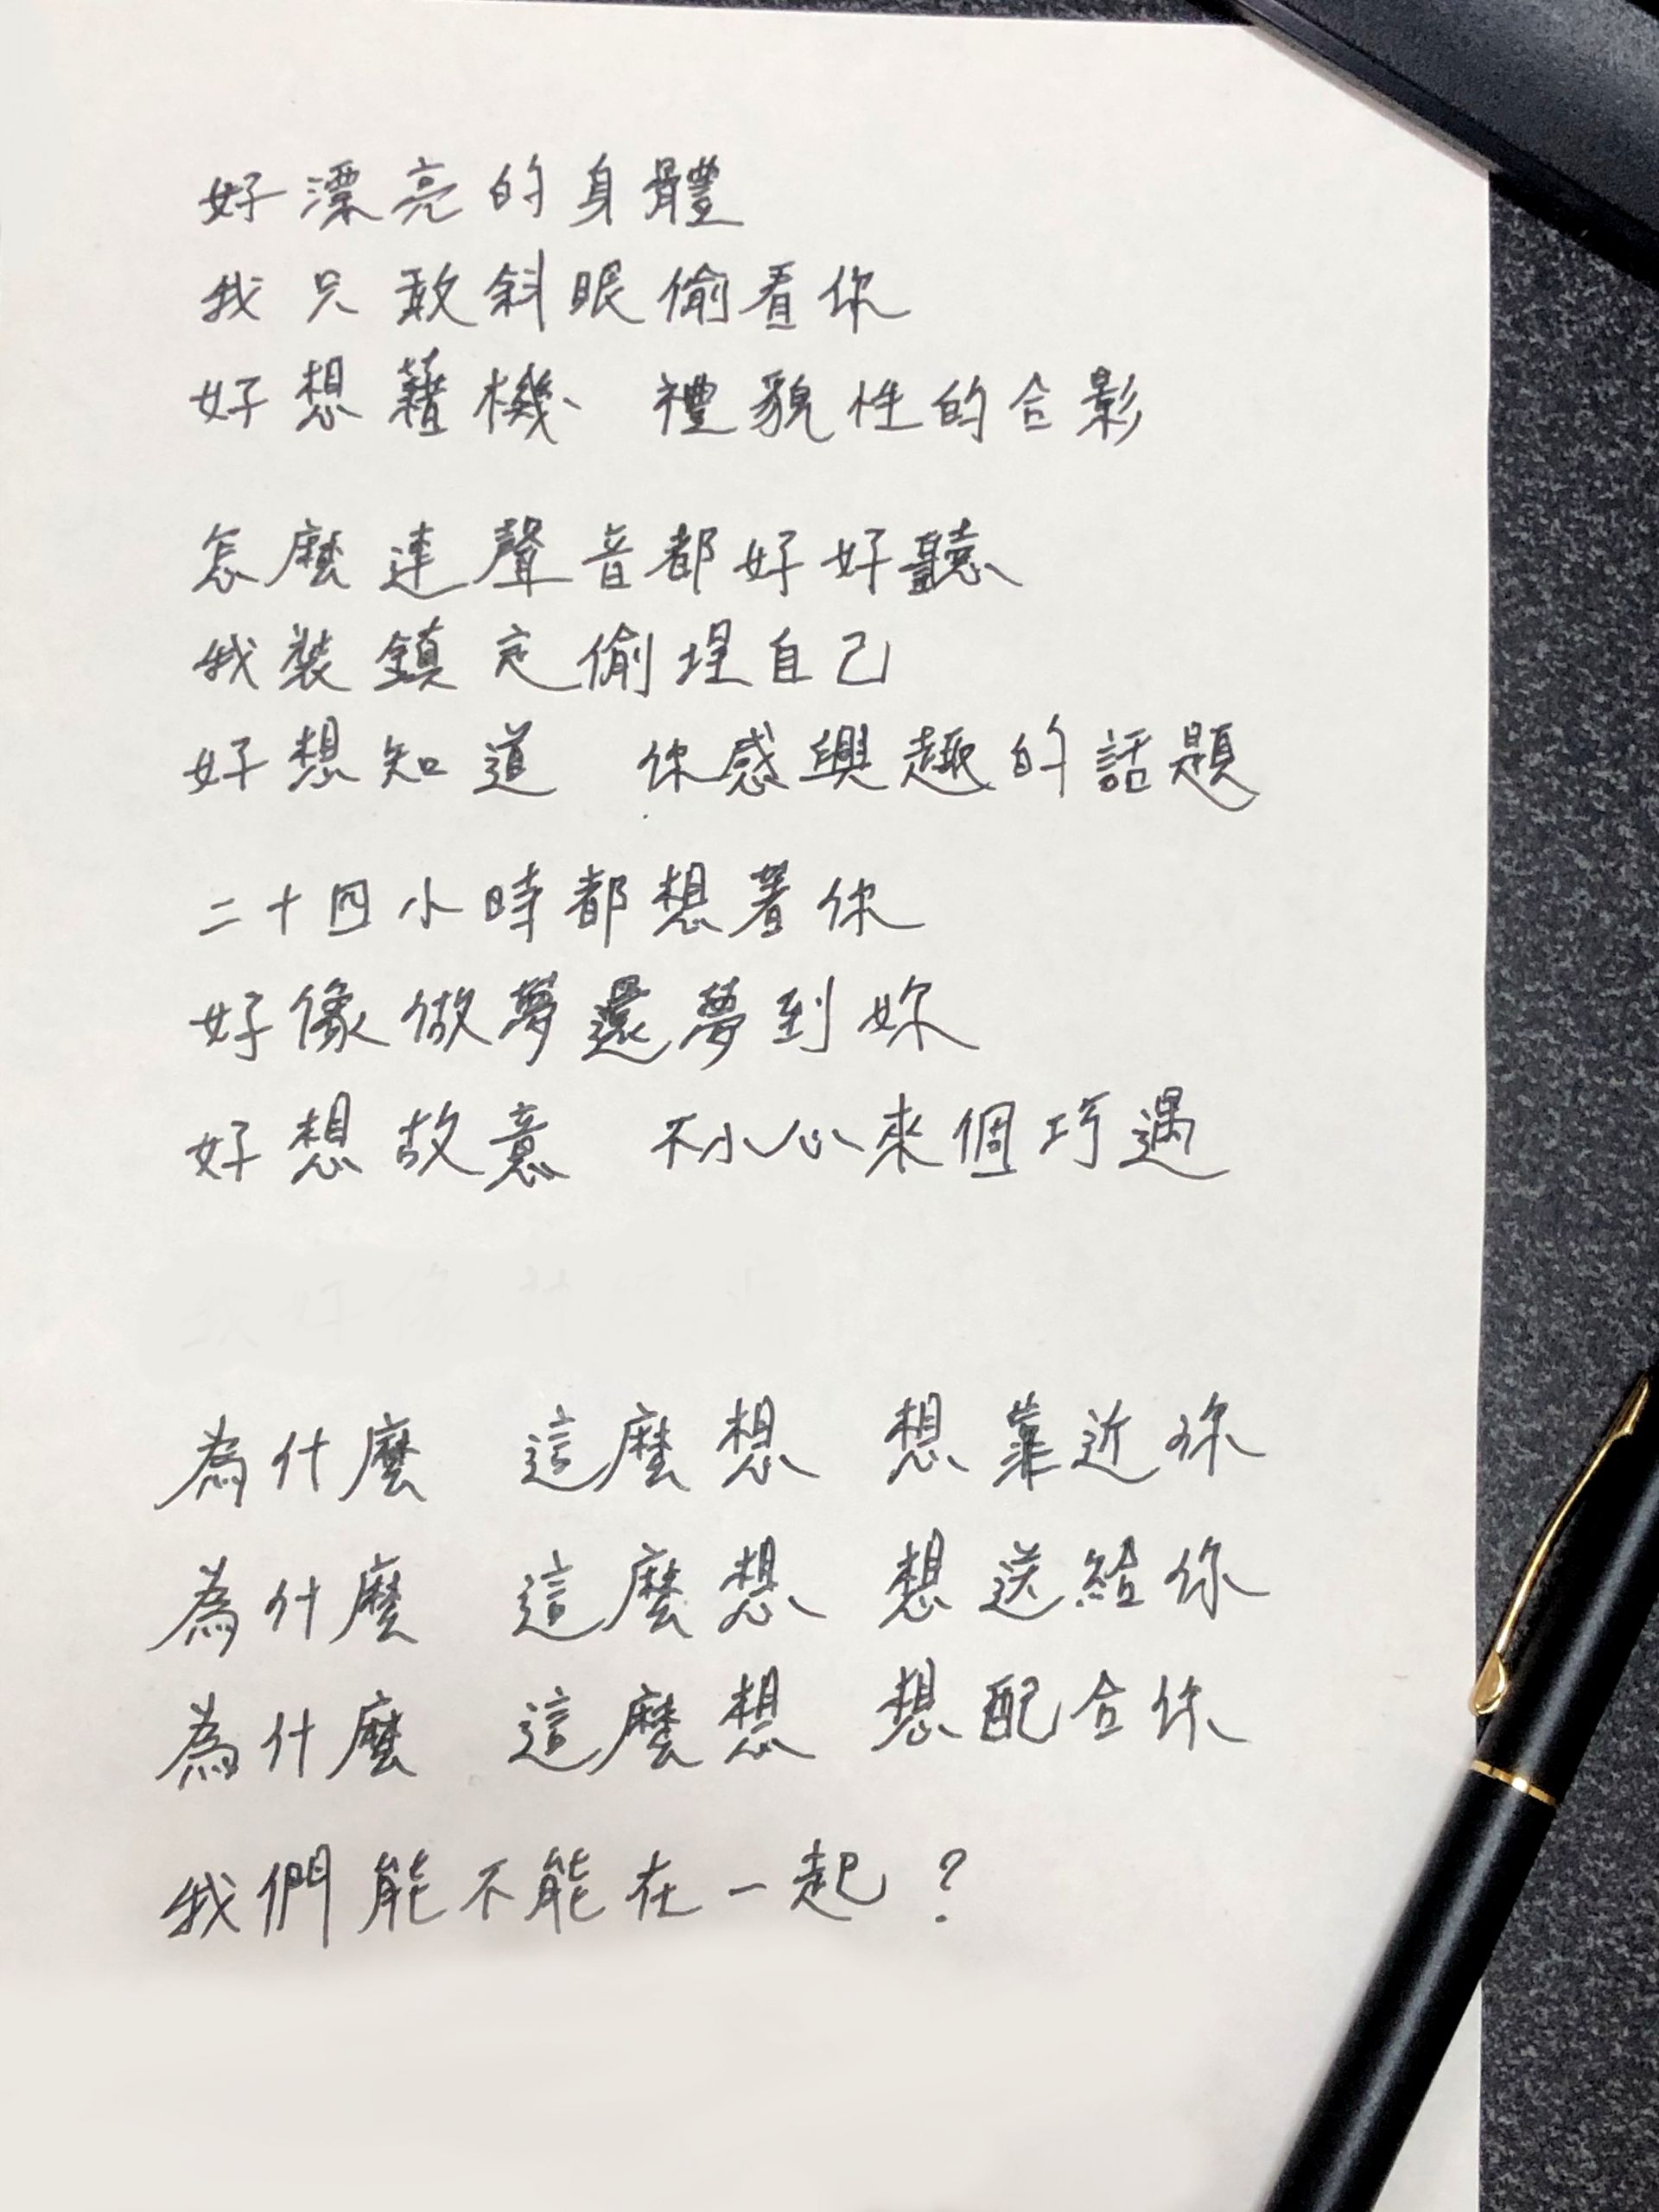 好漂亮的身體
我只敢斜眼偷看你
好想藉機 禮貌性的合影
怎麼連聲音都好好聽
我裝鎮定偷埋自己
好想知道 你感興趣的話題
二十四小時都想著你
好像做夢還夢到妳
好想故意 不小心來個巧遇
為什麼 這麼想 想靠近你
為什麼 這麼想 想送給你
為什麼 這麼想 想配合你
我們能不能在一起?